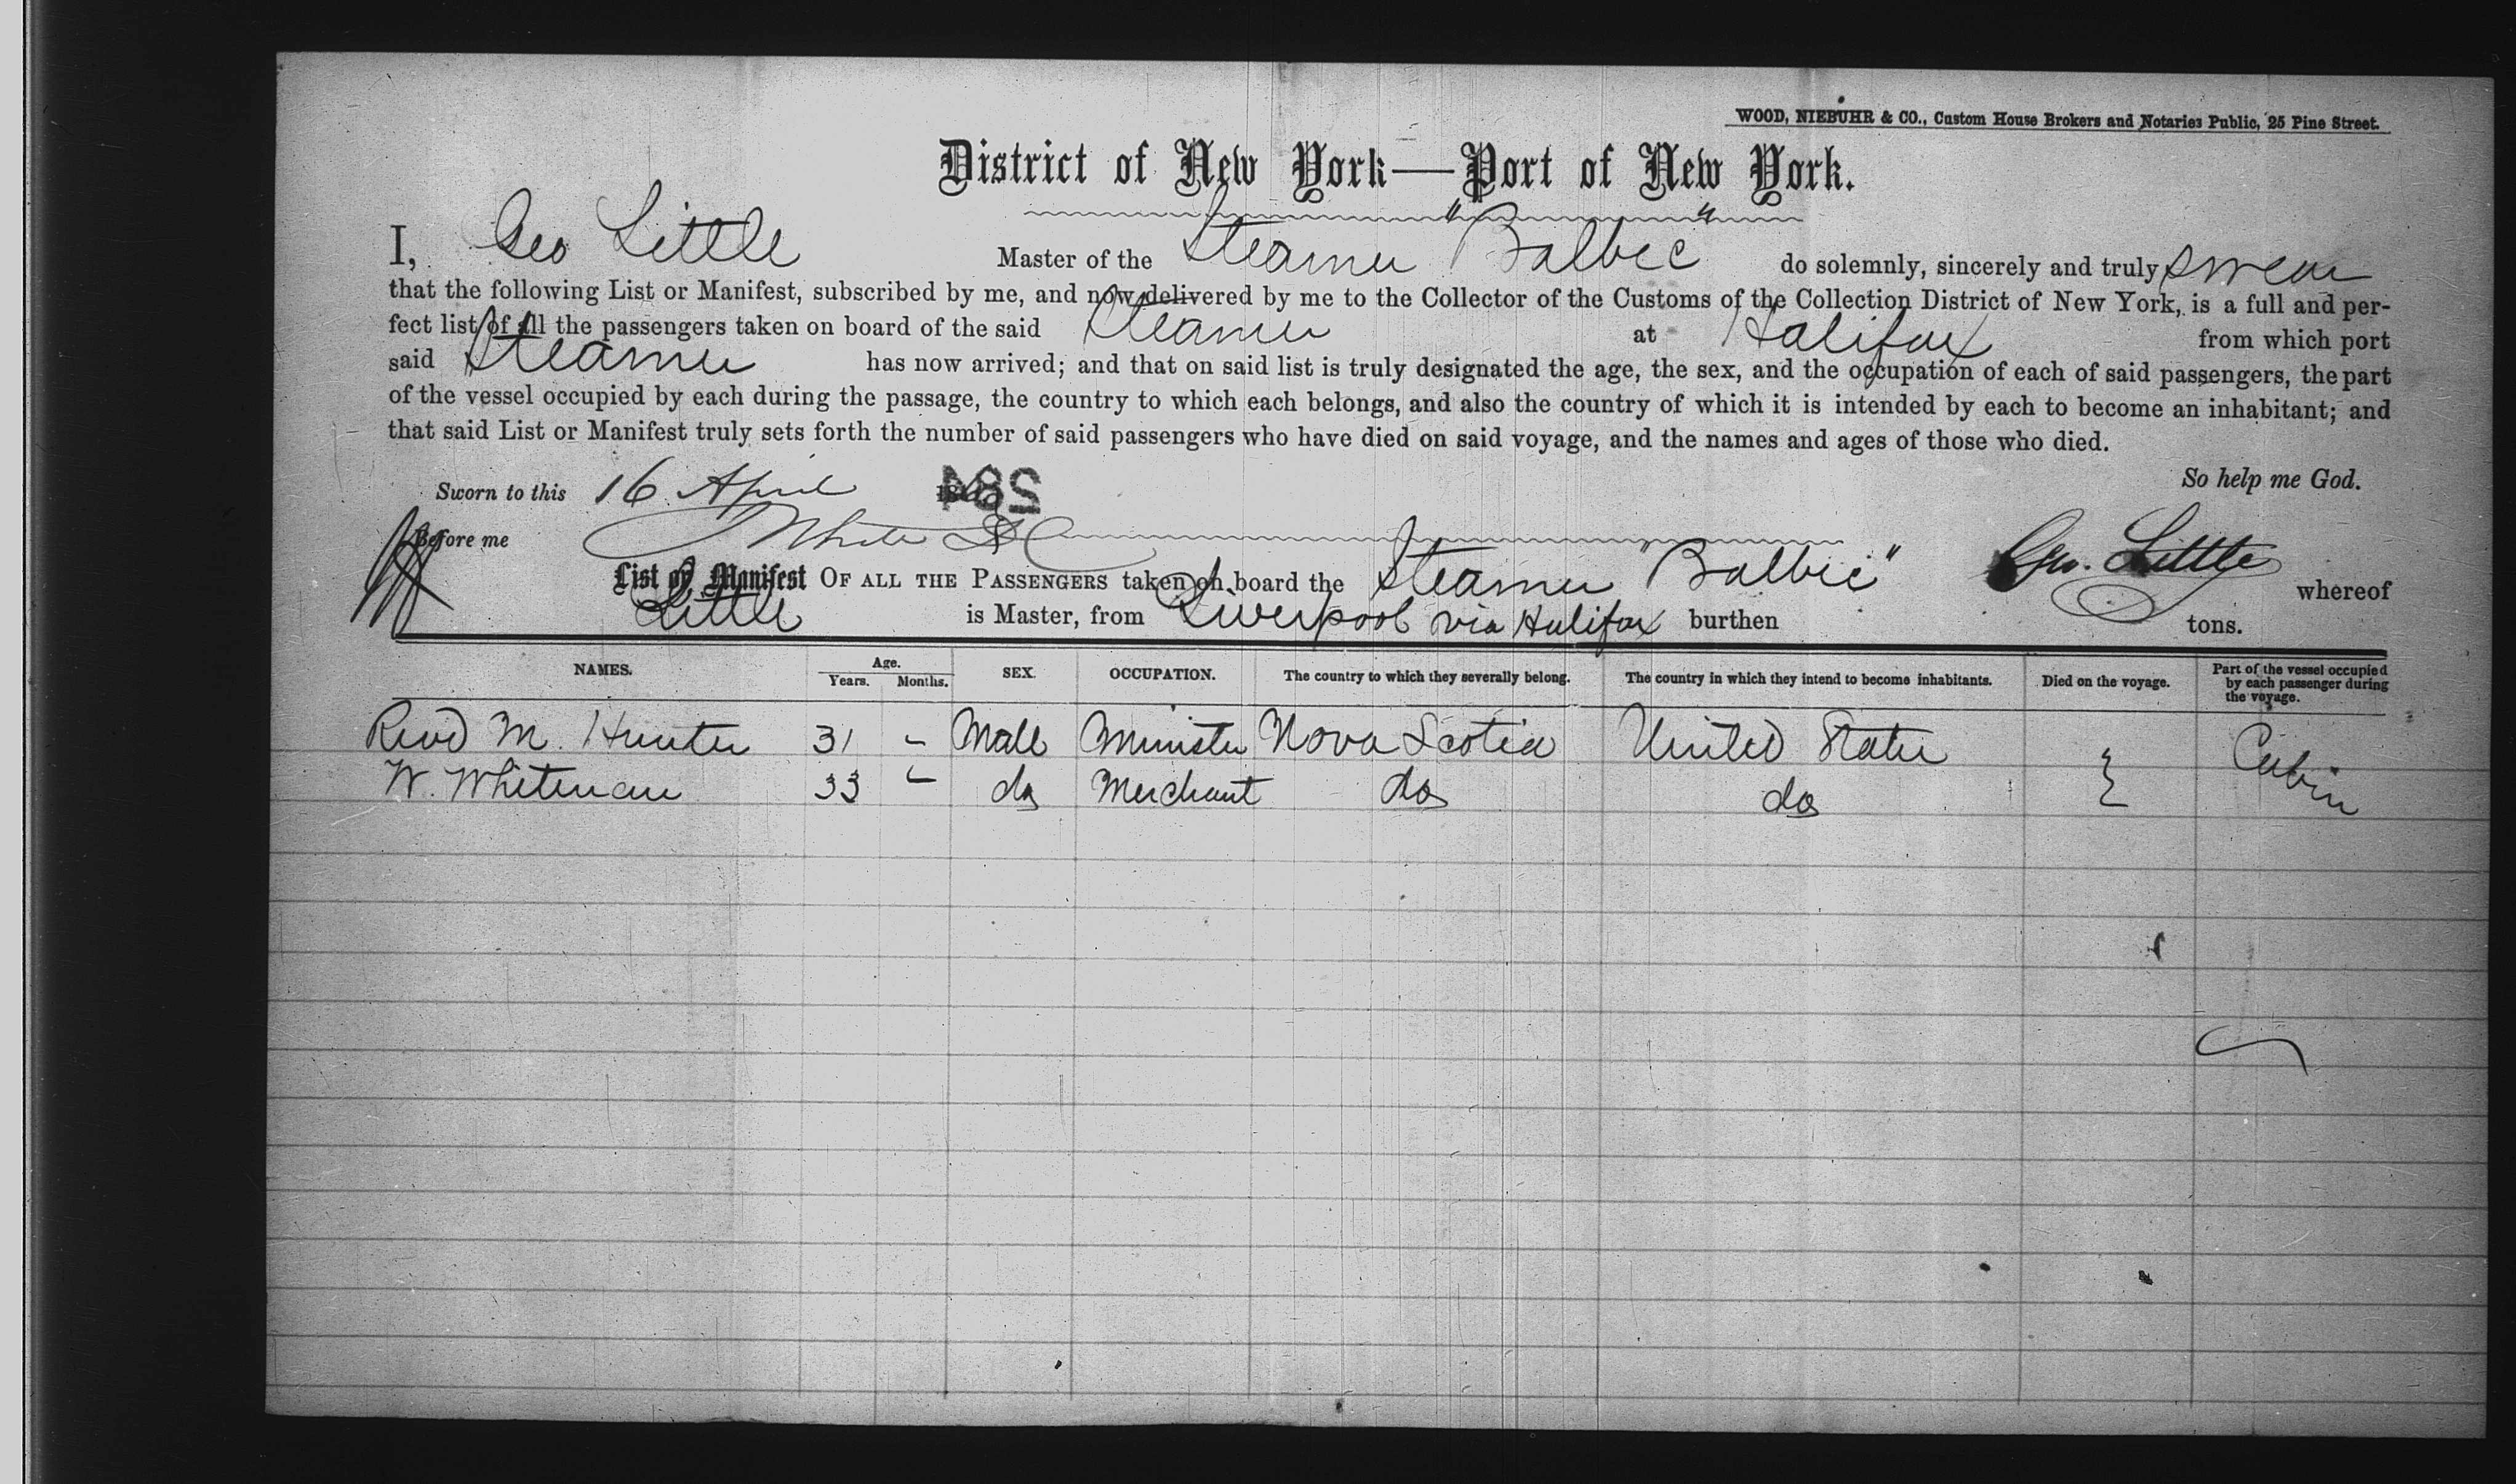 WOOD, NIEBUHR & CO., Custom House Brokers and Notaries Public, 25 Pine Street.
District of New York—Port of New York.
I, Geo Little Master of the Steamer "Balbec" do solemnly, sincerely and truly swear
that the following List or Manifest, subscribed by me, and now delivered by me to the Collector of the Customs of the Collection District of New York, is a full and per-
fect list of all the passengers taken on board of the said Steamer at Halifax from which port
said Steamer has now arrived; and that on said list is truly designated the age, the sex, and the occupation of each of said passengers, the part
of the vessel occupied by each during the passage, the country to which each belongs, and also the country of which it is intended by each to become an inhabitant; and
that said List or Manifest truly sets forth the number of said passengers who have died on said voyage, and the names and ages of those who died.
So help me God.
Sworn to this 16 April 284
Before me White
Geo. Little
List or Manifest OF ALL THE PASSENGERS taken on board the Steamer "Balbec" whereof
Little is Master, from Liverpool via Halifax burthen tons.
NAMES. Age. Years. Months. SEX. OCCUPATION. The country to which they severally belong. The country in which they intend to become inhabitants. Died on the voyage. Part of the vessel occupied by each passenger during the voyage.
Revd M. Hunter 31 - Male Minister Nova Scotia United States Cabin
W. Whiteman 33 - do Merchant do do